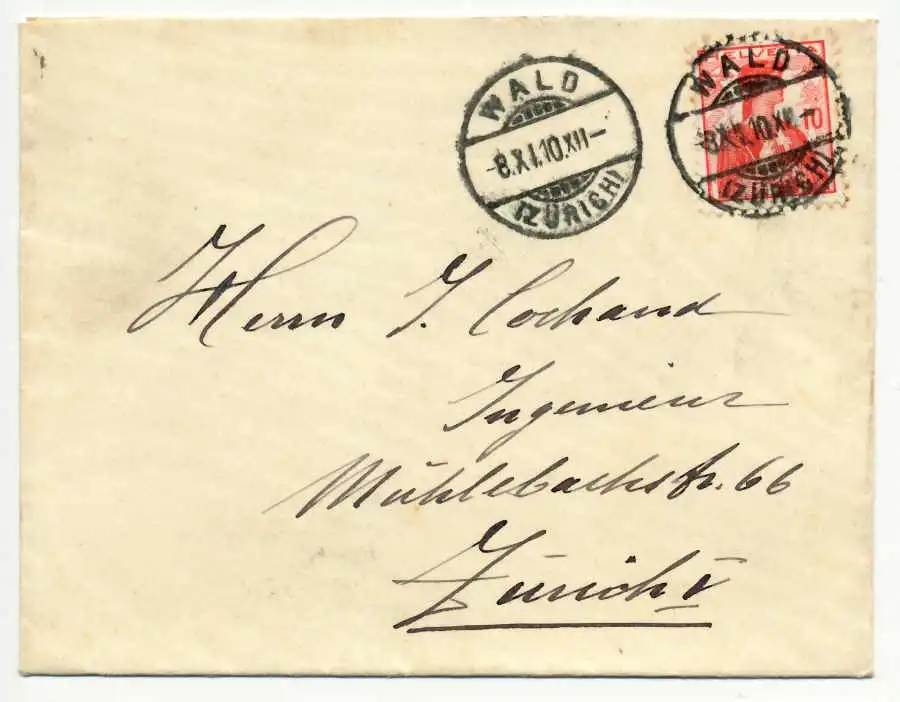 WALD
-8.XI.10.XII-
(ZÜRICH)
HELVETIA
10
WALD
-8.XI.10.XII-
(ZÜRICH)
Herrn J. Cochand
Ingenieur
Mühlebachstr. 66
Zürich V